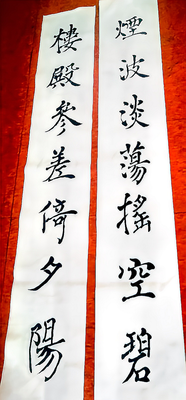 煙波淡蕩搖空碧
樓殿參差倚夕陽